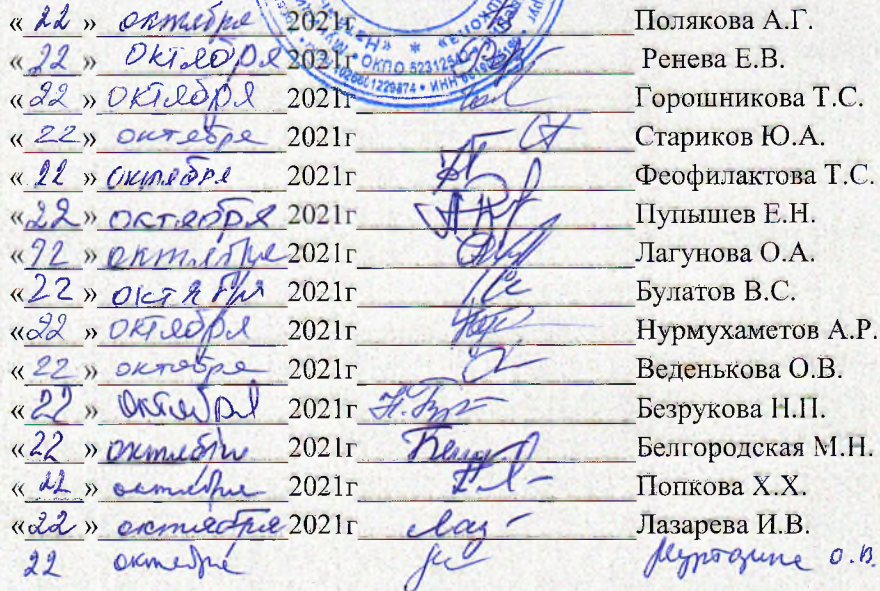 « 22 » октября 2021г Полякова А.Г.
« 22 » октября 2021г Ренева Е.В.
« 22 » октября 2021г Горошникова Т.С.
« 22 » октября 2021г Стариков Ю.А.
« 22 » октября 2021г Феофилактова Т.С.
« 22 » октября 2021г Пупышев Е.Н.
« 22 » октября 2021г Лагунова О.А.
« 22 » октября 2021г Булатов В.С.
« 22 » октября 2021г Нурмухаметов А.Р.
« 22 » октября 2021г Веденькова О.В.
« 22 » октября 2021г Безрукова Н.П.
« 22 » октября 2021г Белгородская М.Н.
« 22 » октября 2021г Попкова Х.Х.
« 22 » октября 2021г Лазарева И.В.
22 октября О.В.